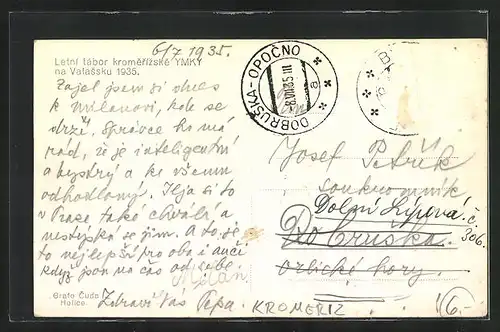 6/7 1935.
Letní tábor kroměřížské YMKY
na Valašsku 1935.
Zajel jsem si dnes
k Milanovi, kde se
drží. Správce ho má
rád, že je inteligentní
a bystrý a ke všemu
odhodlaný. Ilja si to
v Praze také chválí a
nestýská se jim. A to je
to nejlepší pro oba i anči
když jsou na čas od sebe.
Milan
Zdraví Vás Pepa.
Brafo Čuda
Holice.
DOBRUŠKA-OPOČNO
8.VII 35 III
a
Josef Petřík
soukromník
Dolní Lipová č
306.
Dobruška
Orlické hory.
KROMERIZ
6-